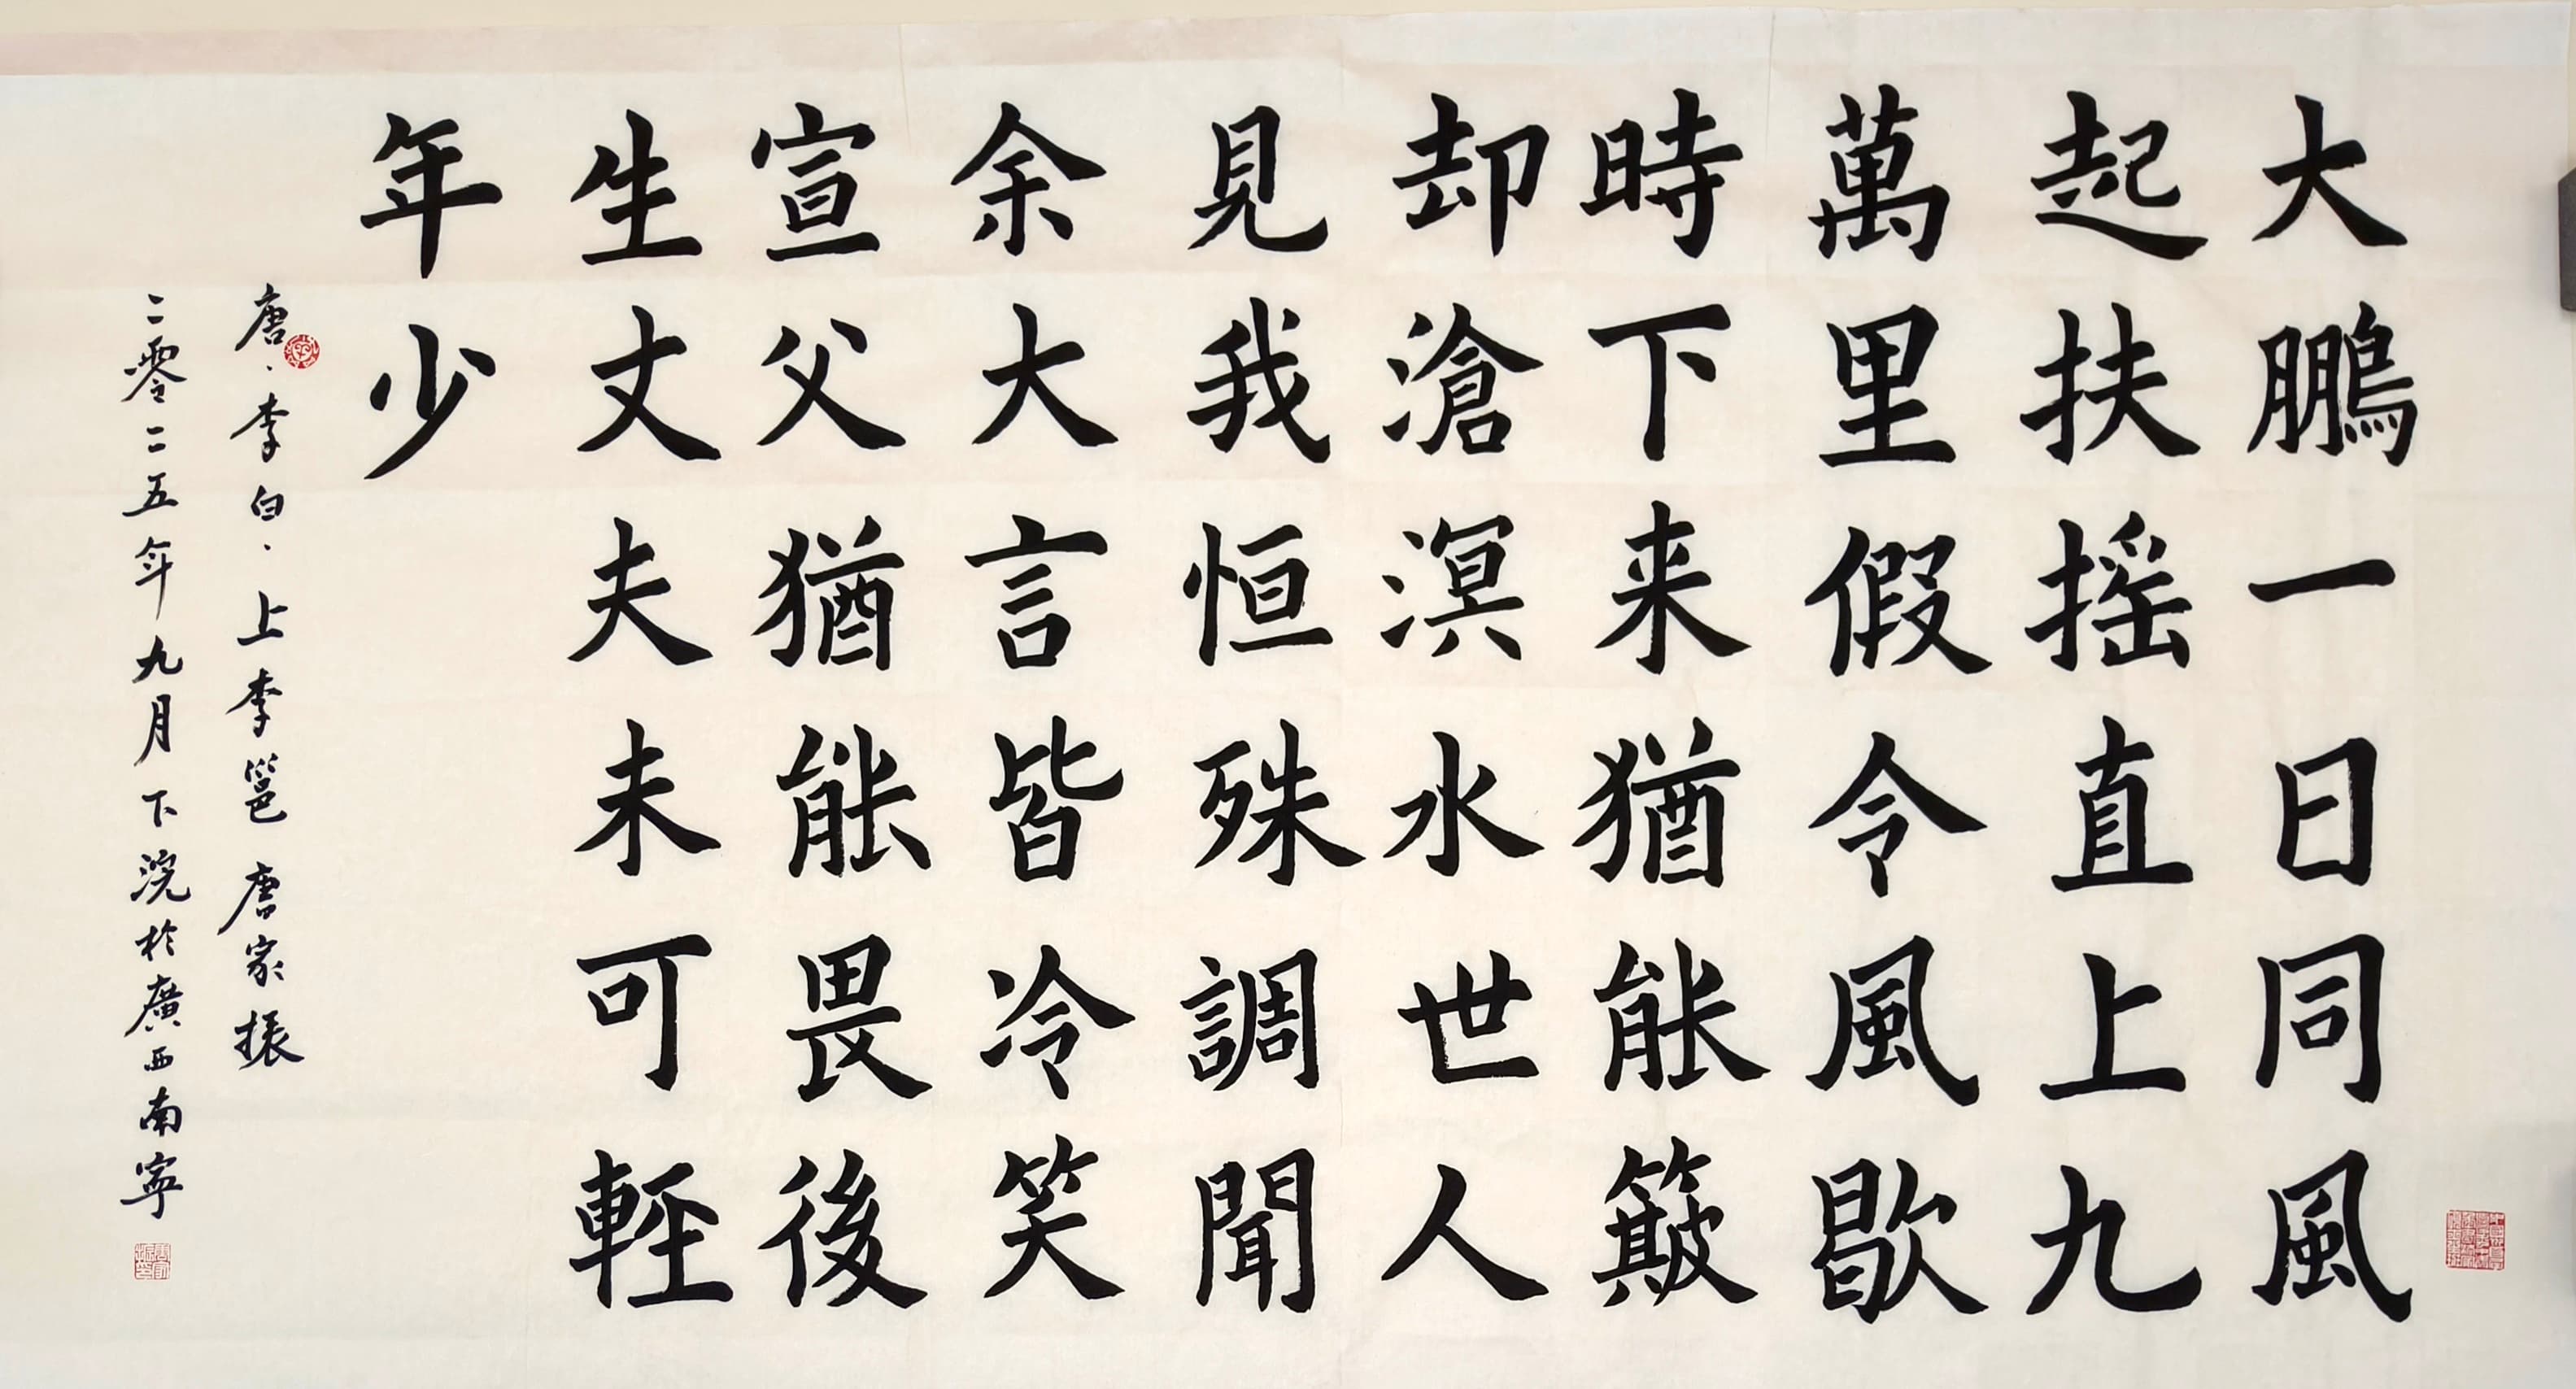 大鵬一日同風
起扶摇直上九
萬里假令風歇
時下来猶能簸
却滄溟水世人
見我恒殊調聞
余大言皆冷笑
宣父猶能畏後
生丈夫未可輕
年少
唐·李白·上李邕 唐家振
二零二五年九月下浣於廣西南寧